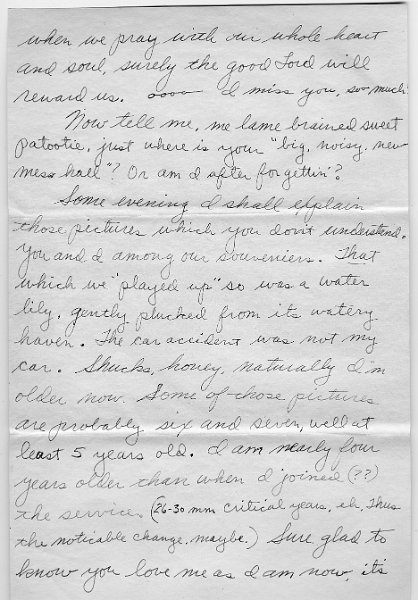 when we pray with our whole heart
and soul, surely the good Lord will
reward us. oooo I miss you, so much!
Now tell me, me lame brained sweet
patootie, just where is your "big, noisy, new
mess hall"? Or am I after forgettin'?
Some evening I shall explain
those pictures which you don't understand.
You and I among our souveniers. That
which we "played up" so was a water
lily, gently plucked from its watery
haven. The car accident was not my
car. Shucks, honey, naturally I'm
older now. Some of those pictures
are probably six and seven, well at
least 5 years old. I am nearly four
years older than when I joined (??)
the service. (26-30 mm critical years, eh. Thus
the noticable change, maybe.) Sure glad to
know you love me as I am now, it's